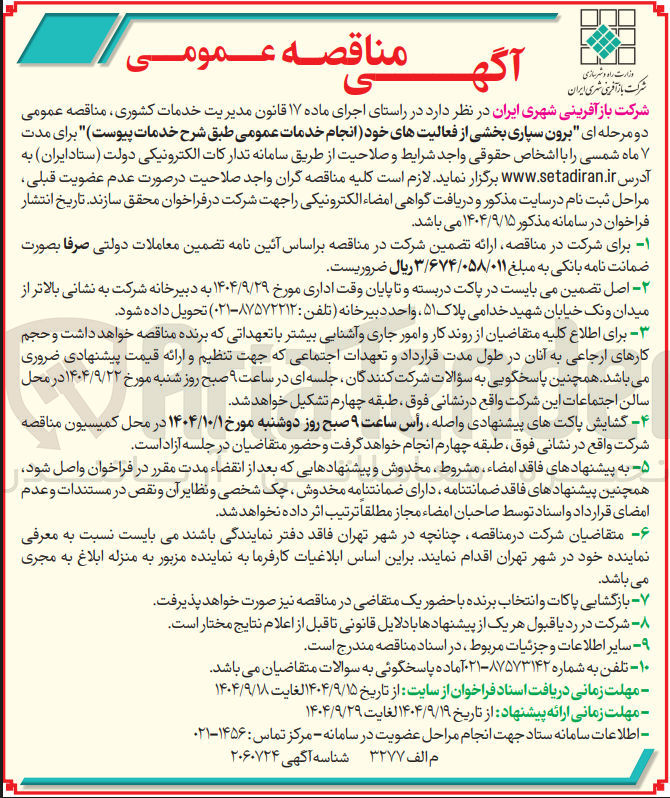 آگهی مناقصه عمومی
وزارت راه و شهرسازی
شرکت بازآفرینی شهری ایران
شرکت بازآفرینی شهری ایران در نظر دارد در راستای اجرای ماده ۱۷ قانون مدیریت خدمات کشوری، مناقصه عمومی
دو مرحله ای "برون سپاری بخشی از فعالیت های خود (انجام خدمات عمومی طبق شرح خدمات پیوست)" برای مدت
۷ ماه شمسی را با اشخاص حقوقی واجد شرایط و صلاحیت از طریق سامانه تدارکات الکترونیکی دولت (ستاد ایران) به
آدرس www.setadiran.ir برگزار نماید. لازم است کلیه مناقصه گران واجد صلاحیت در صورت عدم عضویت قبلی،
مراحل ثبت نام در سایت مذکور و دریافت گواهی امضاء الکترونیکی را جهت شرکت در فراخوان محقق سازند. تاریخ انتشار
فراخوان در سامانه مذکور ۱۴۰۴/۹/۱۵ می باشد.
۱- برای شرکت در مناقصه، ارائه تضمین شرکت در مناقصه براساس آئین نامه تضمین معاملات دولتی صرفا بصورت
ضمانت نامه بانکی به مبلغ ۳/۶۷۴/۰۵۸/۰۱۱ ریال ضروریست.
۲- اصل تضمین می بایست در پاکت دربسته و تا پایان وقت اداری مورخ ۱۴۰۴/۹/۲۹ به دبیرخانه شرکت به نشانی بالاتر از
میدان ونک خیابان شهید خدامی پلاک ۵۱، واحد دبیرخانه (تلفن: ۸۷۵۷۲۲۱۲-۰۲۱) تحویل داده شود.
۳- برای اطلاع کلیه متقاضیان از روند کار و امور جاری و آشنایی بیشتر با تعهداتی که برنده مناقصه خواهد داشت و حجم
کارهای ارجاعی به آنان در طول مدت قرارداد و تعهدات اجتماعی که جهت تنظیم و ارائه قیمت پیشنهادی ضروری
می باشد. همچنین پاسخگویی به سؤالات شرکت کنندگان، جلسه ای در ساعت ۹ صبح روز شنبه مورخ ۱۴۰۴/۹/۲۲ در محل
سالن اجتماعات این شرکت واقع در نشانی فوق، طبقه چهارم تشکیل خواهد شد.
۴- گشایش پاکت های پیشنهادی واصله، رأس ساعت ۹ صبح روز دوشنبه مورخ ۱۴۰۴/۱۰/۱ در محل کمیسیون مناقصه
شرکت واقع در نشانی فوق، طبقه چهارم انجام خواهد گرفت و حضور متقاضیان در جلسه آزاد است.
۵- به پیشنهادهای فاقد امضاء، مشروط، مخدوش و پیشنهادهایی که بعد از انقضاء مدت مقرر در فراخوان واصل شود،
همچنین پیشنهادهای فاقد ضمانتنامه، دارای ضمانتنامه مخدوش، چک شخصی و نظایر آن و نقص در مستندات و عدم
امضای قرارداد و اسناد توسط صاحبان امضاء مجاز مطلقاً ترتیب اثر داده نخواهد شد.
۶- متقاضیان شرکت در مناقصه، چنانچه در شهر تهران فاقد دفتر نمایندگی باشند می بایست نسبت به معرفی
نماینده خود در شهر تهران اقدام نمایند. براین اساس ابلاغیات کارفرما به نماینده مزبور به منزله ابلاغ به مجری
می باشد.
۷- بازگشایی پاکات و انتخاب برنده با حضور یک متقاضی در مناقصه نیز صورت خواهد پذیرفت.
۸- شرکت در رد یا قبول هر یک از پیشنهادها با دلایل قانونی تا قبل از اعلام نتایج مختار است.
۹- سایر اطلاعات و جزئیات مربوط، در اسناد مناقصه مندرج است.
۱۰- تلفن به شماره ۸۷۵۷۳۱۴۲-۰۲۱ آماده پاسخگوئی به سوالات متقاضیان می باشد.
- مهلت زمانی دریافت اسناد فراخوان از سایت: از تاریخ ۱۴۰۴/۹/۱۵ لغایت ۱۴۰۴/۹/۱۸
- مهلت زمانی ارائه پیشنهاد: از تاریخ ۱۴۰۴/۹/۱۹ لغایت ۱۴۰۴/۹/۲۹
- اطلاعات سامانه ستاد جهت انجام مراحل عضویت در سامانه - مرکز تماس: ۱۴۵۶-۰۲۱
م الف ۳۲۷۷ شناسه آگهی ۲۰۶۰۷۲۴